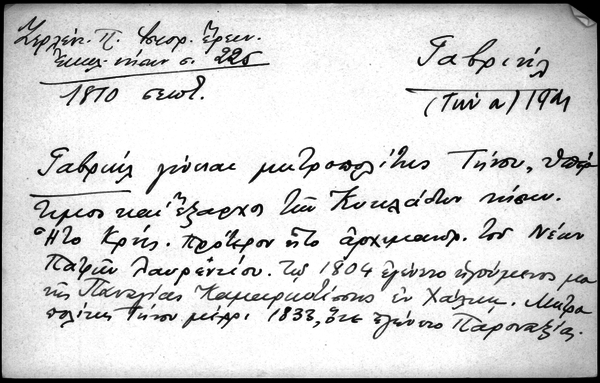 Ζερλέντ. Π. Ιστορ. Έρευν.
Εκκλ. νήσων σ. 225
1810 σεπτ.
Γαβριήλ
(Τήνου)
Γαβριήλ γίνεται μητροπολίτης Τήνου, υπέρ
τιμος και έξαρχος των Κυκλάδων νήσων.
Ήτο Κρής. πρότερον ήτο αρχιμανδρ. του Νέων
Πατρών Λαυρεντίου. τω 1804 εγένετο ηγούμενος μο
της Παναγίας Καμαριωτίσσης εν Χάλκη. Μητρο
πολίτης Τήνου μέχρι 1833, ότε εγένετο Παροναξίας.